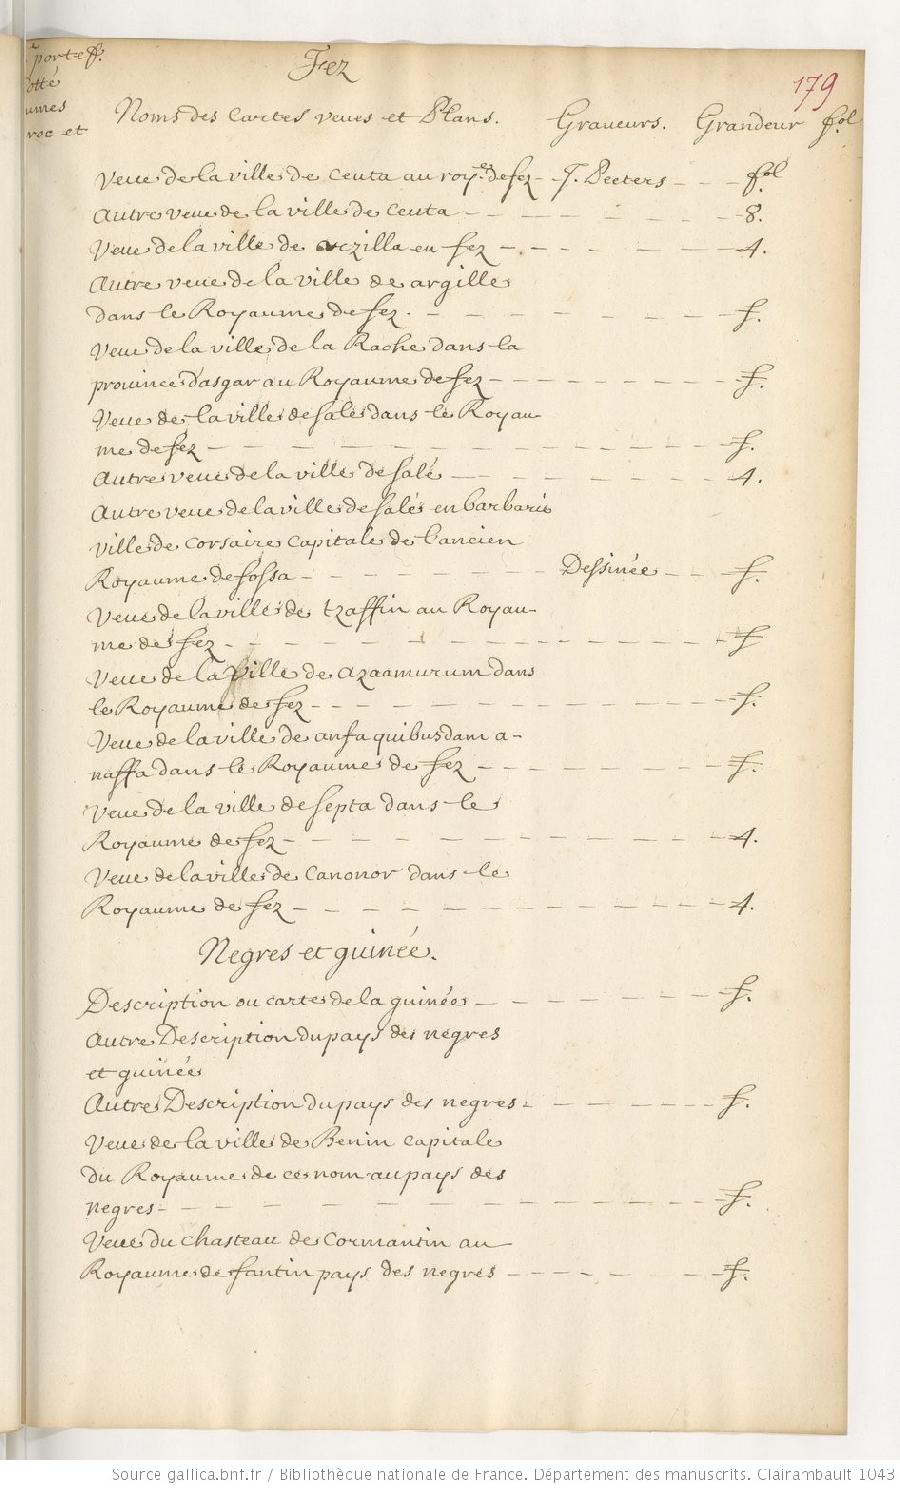 porte f.
Fez
179
Noms des cartes veues et Plans. Graveurs. Grandeur fol
Veue de la ville de ceuta au roy.e de fez - J. Peeters - - - fol
Autre veue de la ville de ceuta - - - - - - - 8.
Veue de la ville de arzilla en fez - - - - - - 4.
Autre veue de la ville de argille
dans le Royaume de fez. - - - - - - f.
Veue de la ville de la Rache dans la
province d'asgar au Royaume de fez - - - - - - f.
Veue de la ville de salé dans le Royau-
me de fez - - - - - - - - - - f.
Autre veue de la ville de salé - - - - - - 4.
Autre veue de la ville de salé en barbarie
ville de corsaire capitale de l'ancien
Royaume de fossa - - - - - - Dessinée - - f.
Veue de la ville de tzaffin au Royau-
me de fez - - - - - - - - - - f
Veue de la Ville de azaamurum dans
le Royaume de fez - - - - - - - - f.
Veue de la ville de anfa quibusdam a-
naffa dans le Royaume de fez - - - - - - f.
Veue de la ville de septa dans le
Royaume de fez - - - - - - - - 4.
Veue de la ville de canonor dans le
Royaume de fez - - - - - - - - 4.
Negres et guinée.
Description ou carte de la guinée - - - - - - f.
Autre Description du pays des negres
et guinée
Autre Description du pays des negres - - - - - f.
Veue de la ville de Benin capitale
du Royaume de ce nom au pays des
negres - - - - - - - - - - f.
Veue du chasteau de Cormantin au
Royaume de fantin pays des negres - - - - - f.
Source gallica.bnf.fr / Bibliothèque nationale de France. Département des manuscrits. Clairambault 1043